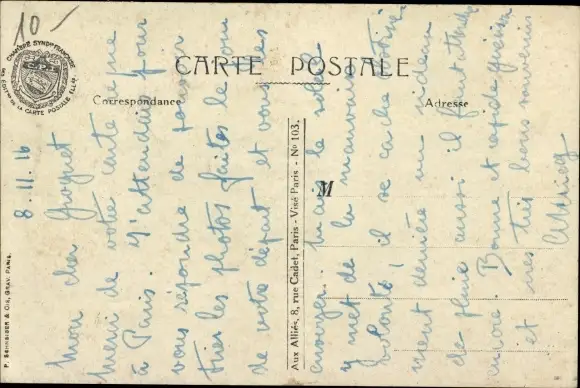 10 -
CHAMBRE SYNDle FRANÇAISE
DES EDITrs DE LA CARTE POSTALE ILLée
CARTE POSTALE
Correspondance
Adresse
M
Aux Alliés, 8, rue Cadet, Paris - Visé Paris - No 103.
P. SCHNEIDER & Cie, GRAV. PARIS.
8-11. 16
Mon cher
Merci de votre carte reçue
à Paris. J'attendais pour
vous répondre de pouvoir
tirer les photos faites le jour
de votre départ et vous les
envoyer. Mais le soleil
y met de la mauvaise
volonté! il se cache
derrière un rideau
de pluie aussi il faut attendre
encore. Bonne et rapide guérison
et mes très bons souvenirs